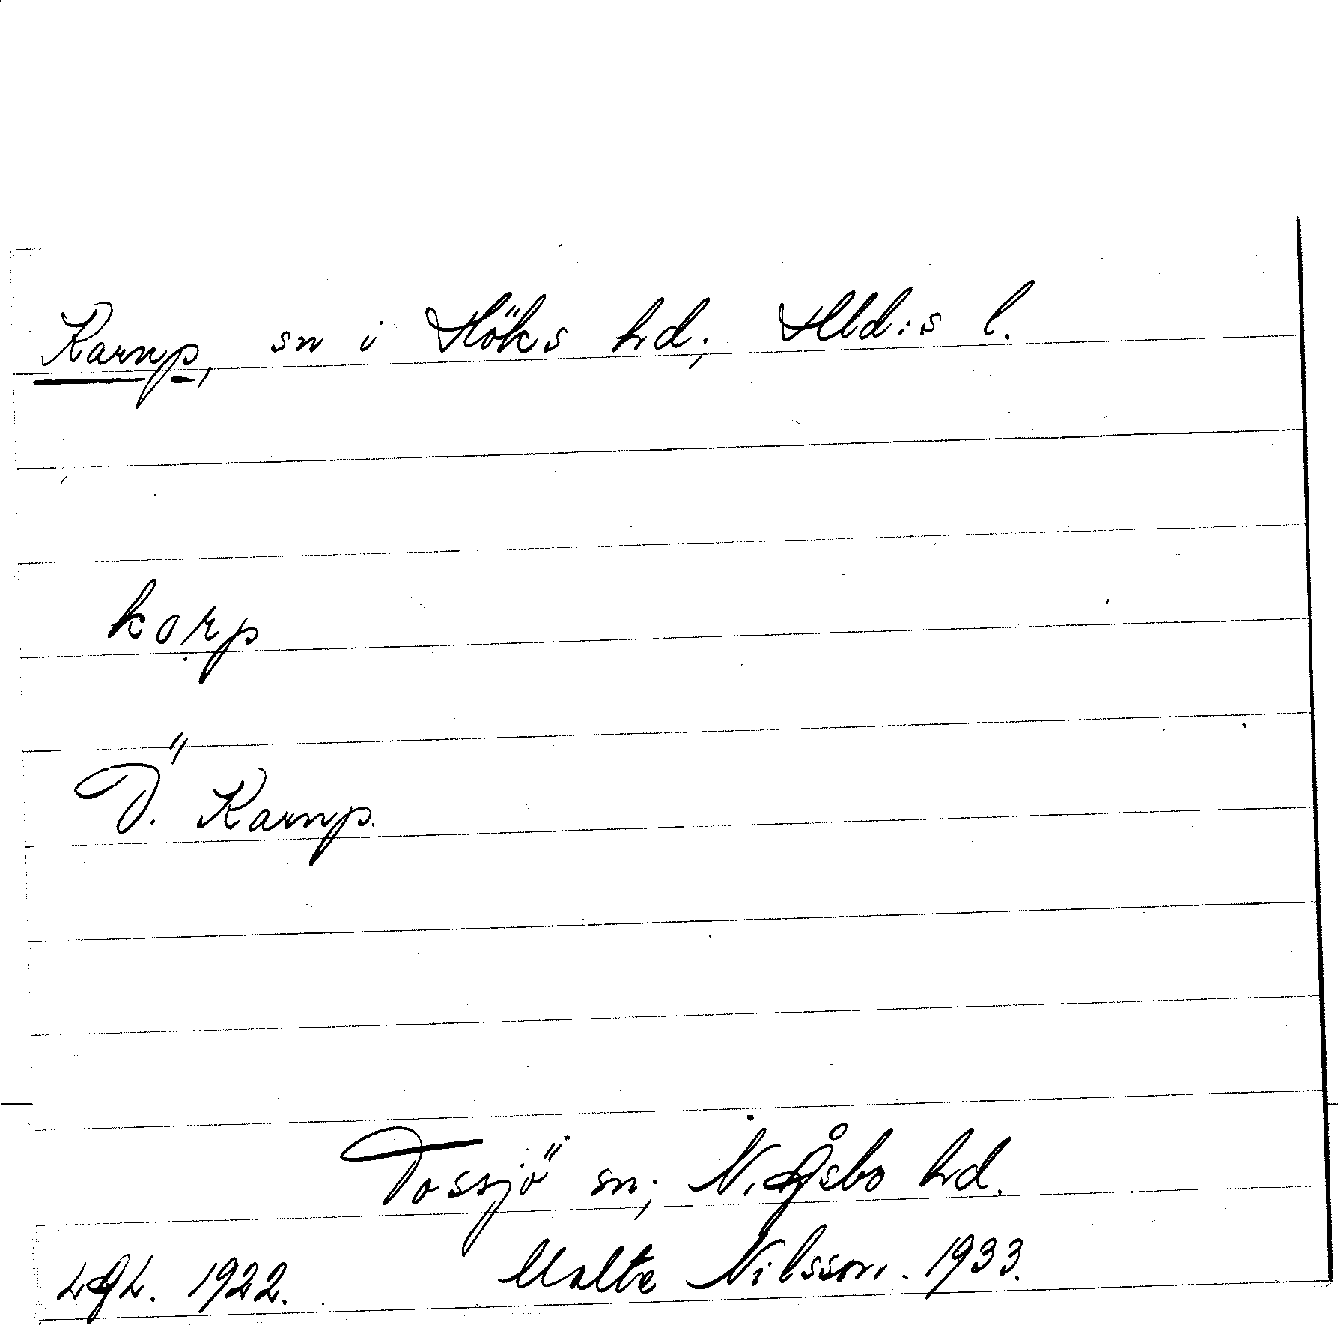 Karup, sn i Höks hd; Hld:s l.
korp
Ö. Karup.
Tossjö sn; N. Åsbo hd.
1922. Malte Nilsson. 1933.